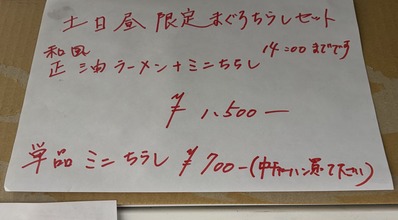 土日昼限定まぐろちらしセット
和風 14:00までです
正油ラーメン+ミニちらし
¥1,500-
単品ミニちらし ¥700-(中 買って下さい)